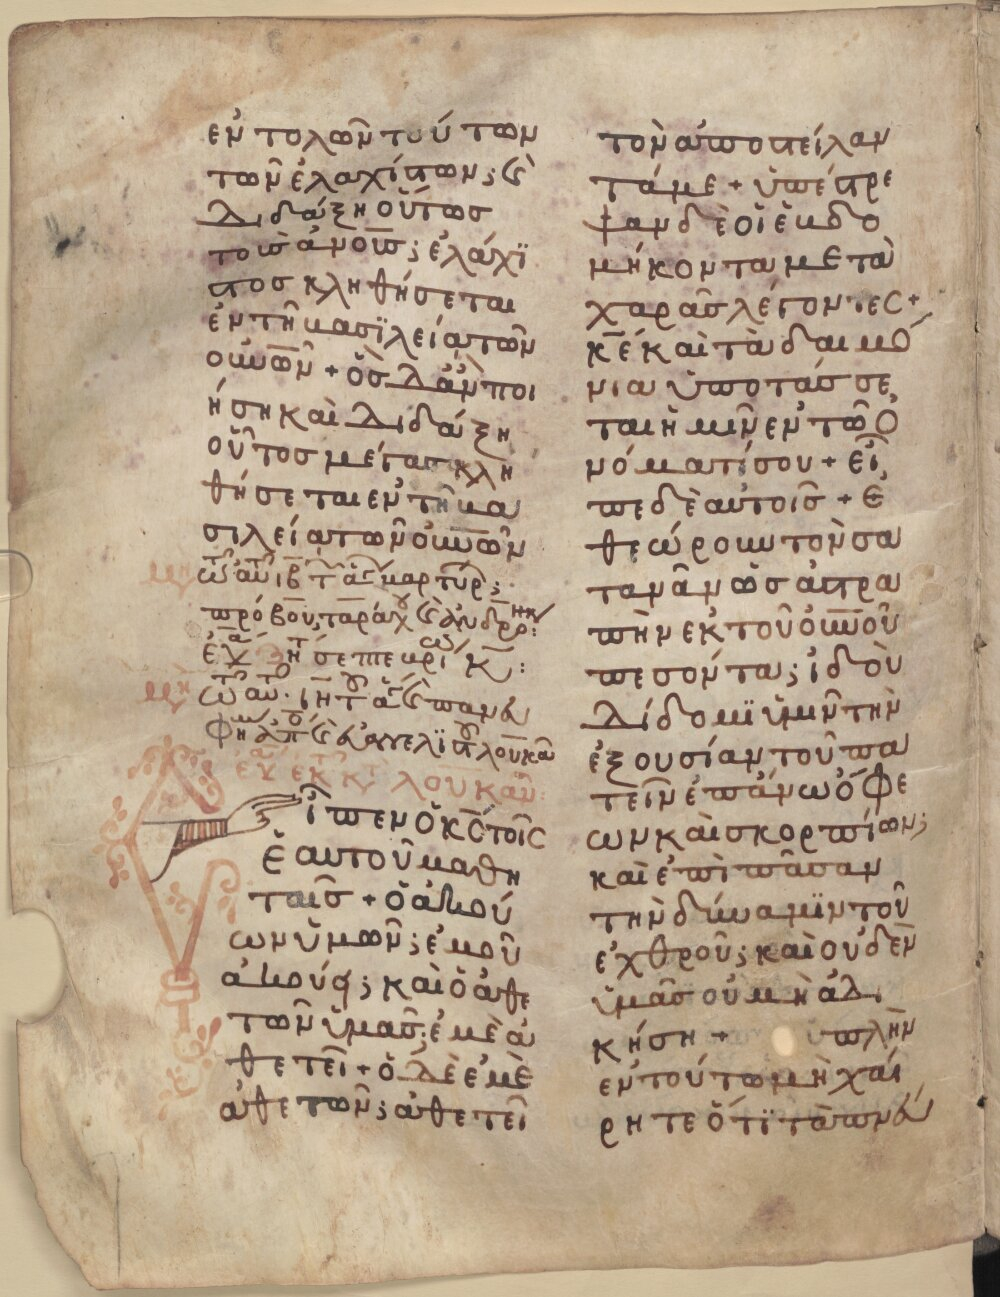 ἐντολῶν τού των
τῶν ἐλαχίστων; καὶ
διδάξη οὕτωσ
τοὺσ ἀν̅ο̅υ̅σ; ἐλάχϊ
στοσ κληθήσεται
ἐν τῆ βασϊλεία τῶν
οὐ̅ν̅ῶ̅ν + ὃσ δ' ἂν ποι
ήση καὶ διδάξη
οὗτοσ μέγασ κλη
θήσεται ἐν τῆ βα
σιλεία τῶν οὐ̅ν̅ῶ̅ν
μαρτύρ;
πρόβου; ταράχου καὶ ἀνδρο
σεπτεβρί
λουκᾶ
λουκᾶν:
ἶπεν ὁ κ̅ς̅ τοῖς
ἑαυτοῦ μαθη
ταῖσ + ὁ ἀκού
ων ὑμῶν; ἐμοῦ
ἀκούει; καὶ ὁ ἀθε
τῶν ὑμᾶσ; ἐμὲ ἀ
θετεῖ + ὁ δὲ ἐμὲ
ἀθετῶν; ἀθετεῖ
τὸν ἀποστείλαν
τά με + ὑπέστρε
ψαν δὲ οἱ ἑβδο
μήκοντα μετὰ
χαρᾶσ λέγοντες +
κ̅έ̅ καὶ τὰ δαιμό
νια ὑποτάσσε
ται ἡμῖν ἐν τῶ ὀ
νόματί σου + εἶ
πε δὲ αὐτοῖσ + ἐ
θεώρουν τὸν σα
τανᾶν ὡσ ἀστρα
πὴν ἐκ τοῦ οὐ̅ν̅οῦ
πεσόντα; ἰδοὺ
δίδομϊ ὑμῖν τὴν
ἐξουσίαν τοῦ πα
τεῖν ἐπάνω ὄφε
ων καὶ σκορπίων;
καὶ ἐπὶ πᾶσαν
τὴν δύναμϊν τοῦ
ἐχθροῦ; καὶ οὐδὲν
ὑμᾶσ οὐ μὴ ἀδι
κήση + πλὴν
ἐν τούτω μὴ χαί
ρητε ὅτϊ τὰ πνα